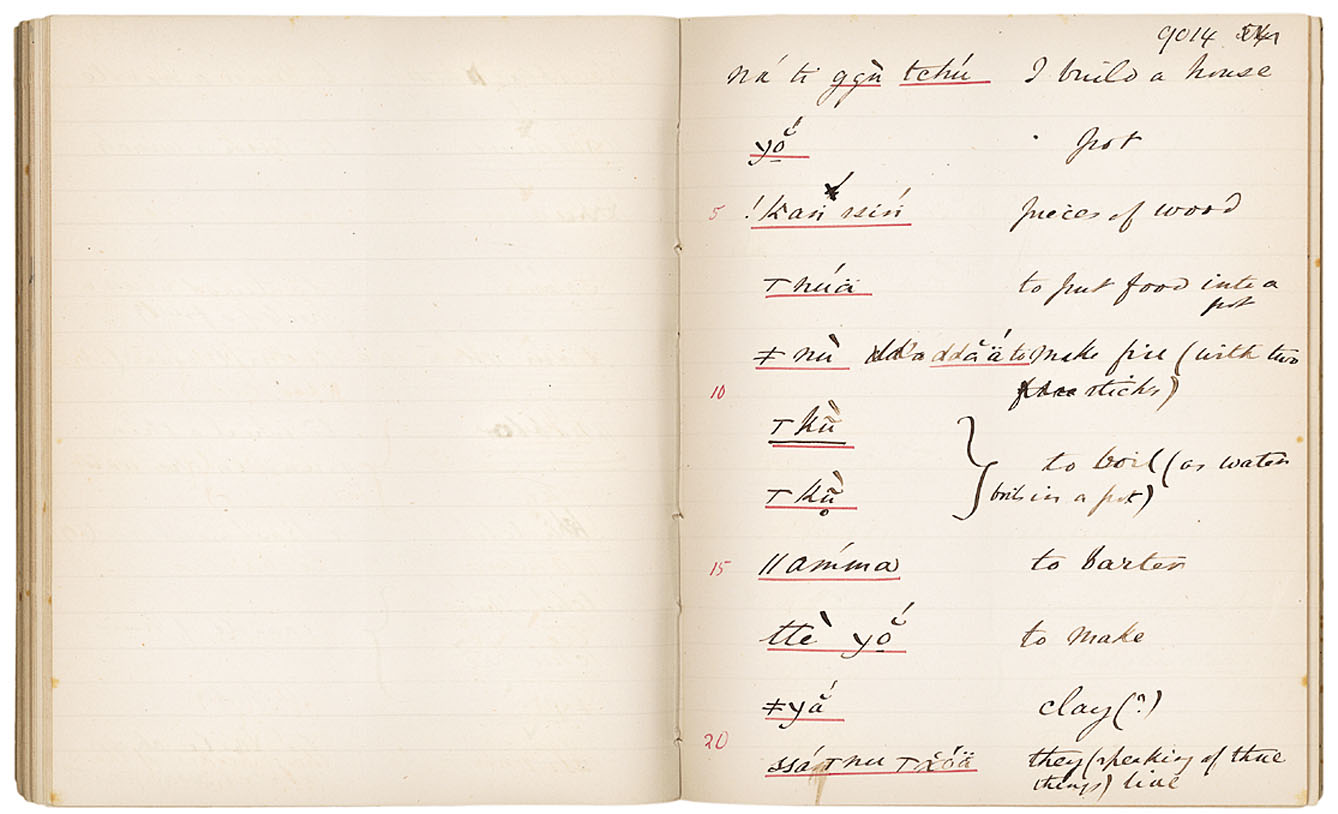 9014
ná ti ggù tchú I build a house
yŏ̱́ pot
5 !kań ssiń pieces of wood
⊤núä to put food into a
pot
ǂ nù ddắä to make fire (with two
10 sticks)
⊤kǜ
to boil (as water
⊤kǜ̥ boils in a pot)
15 ǁaḿma to barter
ttè yŏ̱́ to make
ǂyắ clay (?)
20
ssá⊤nu they (speaking of three
things) live